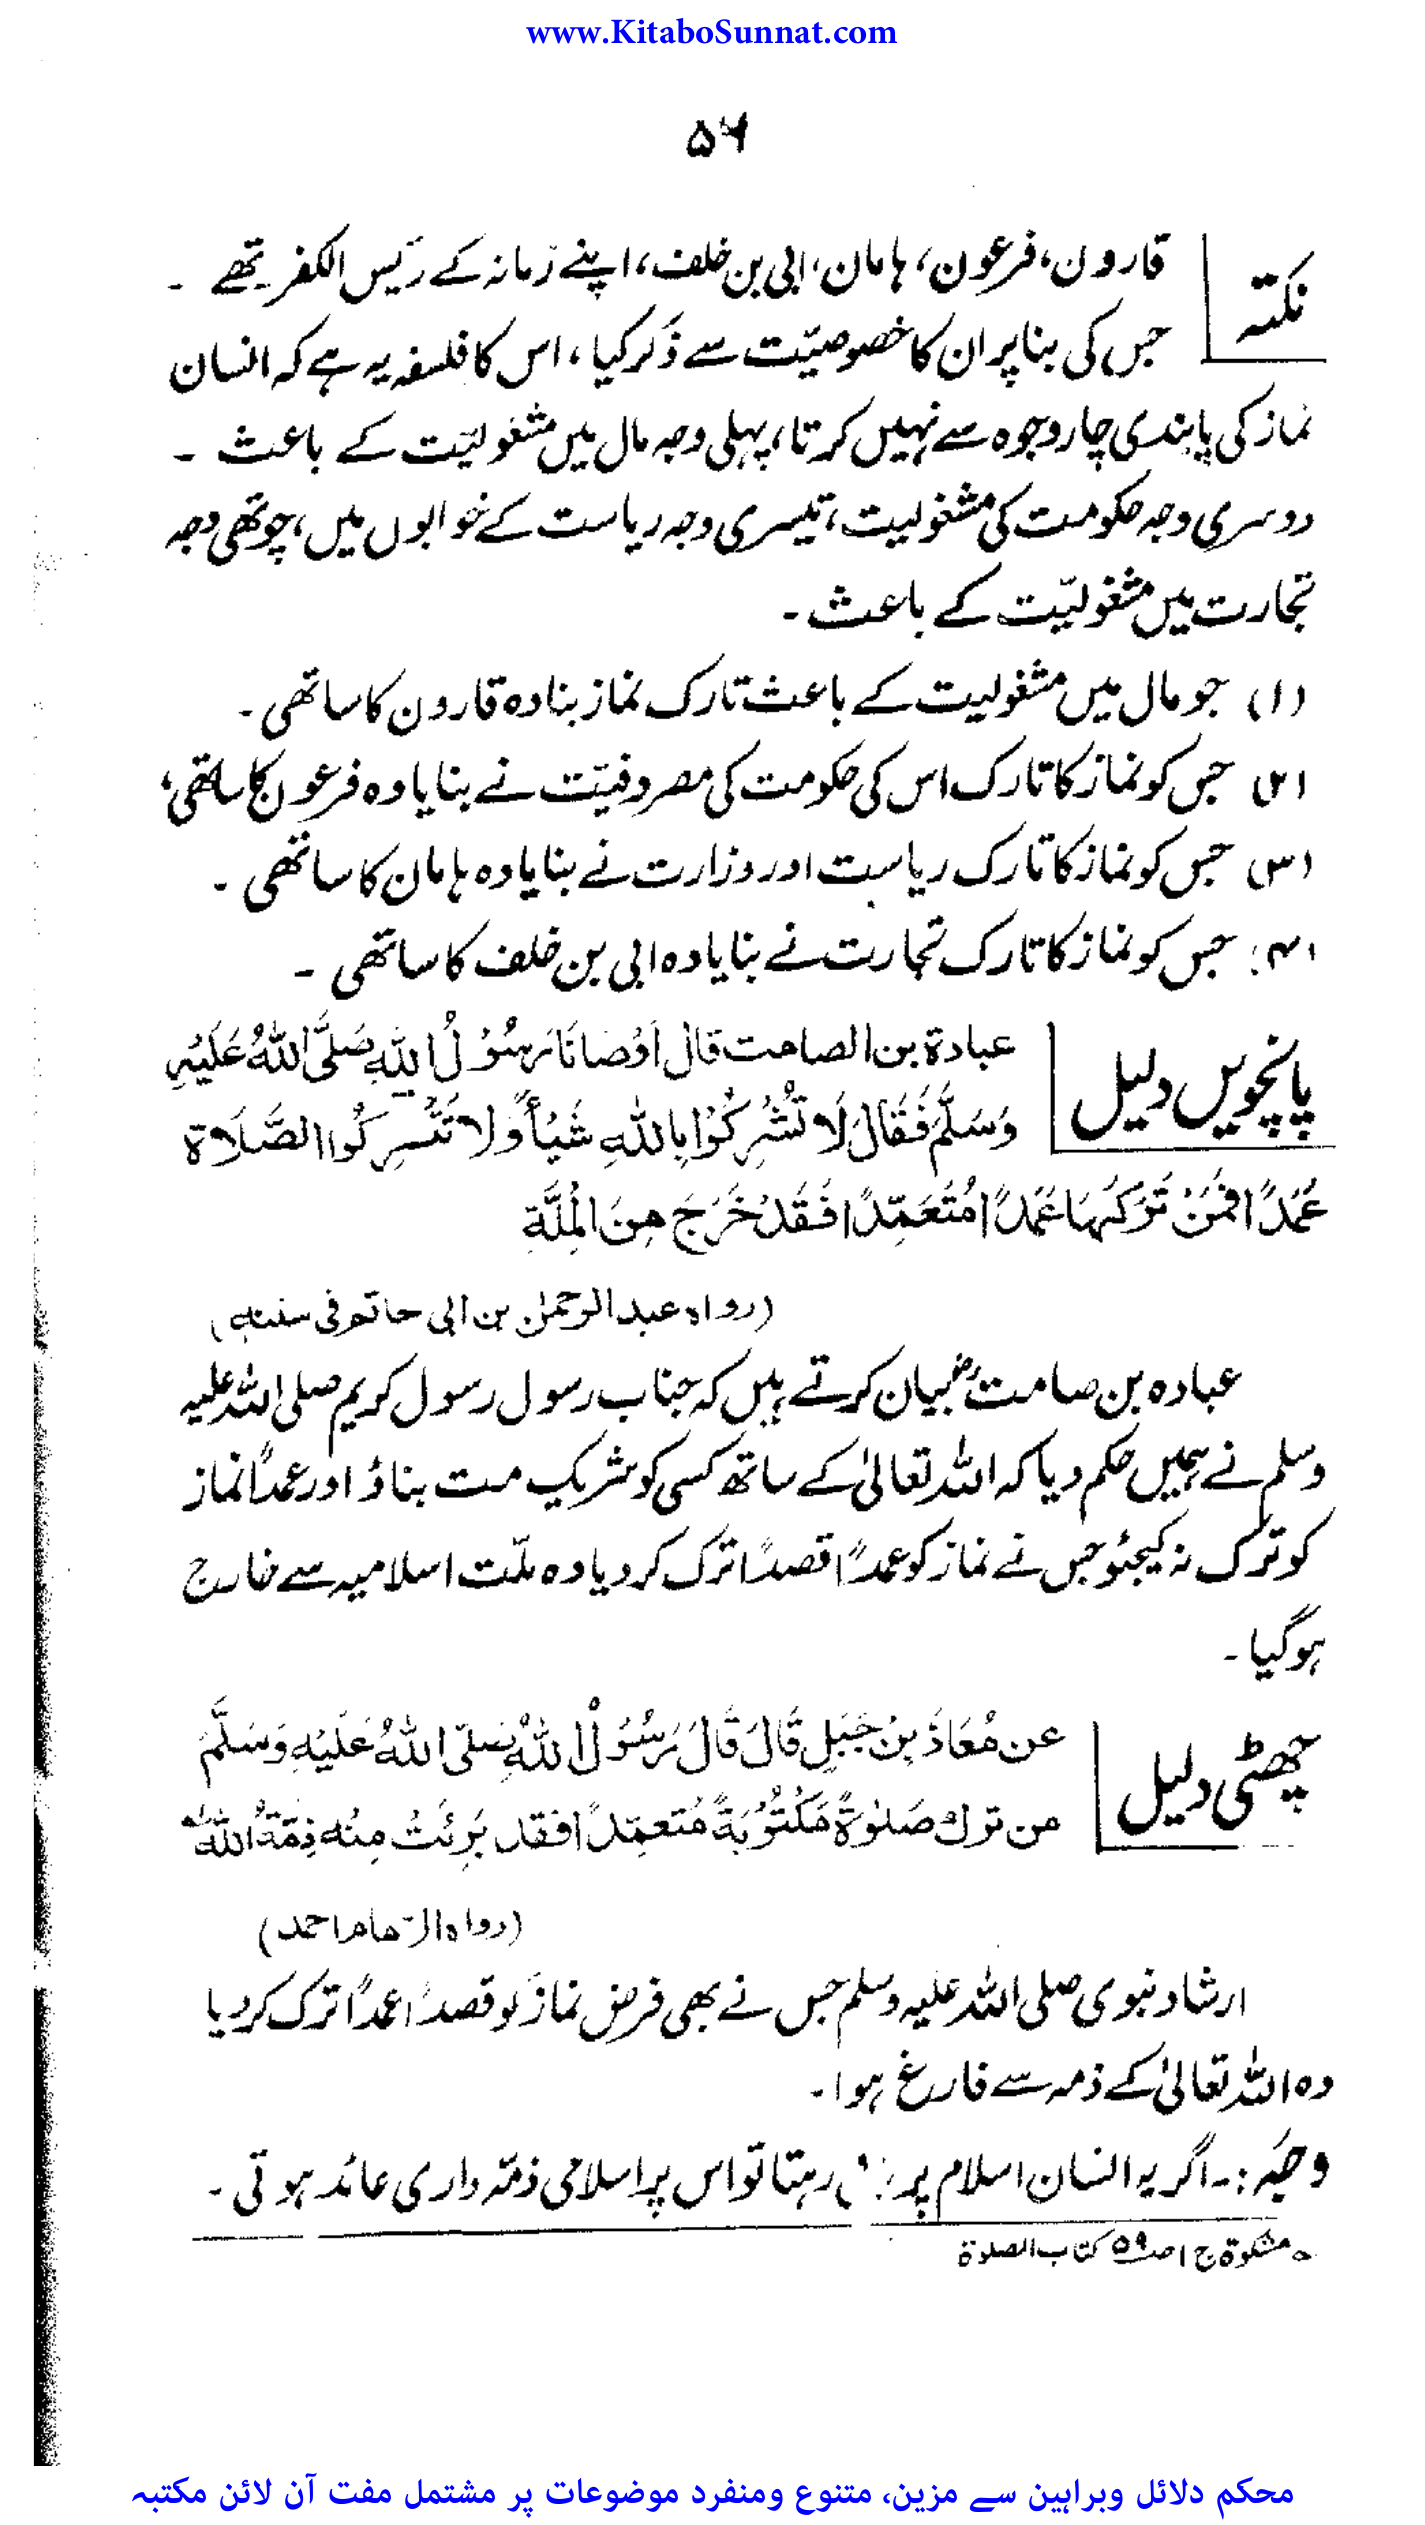 www.KitaboSunnat.com
۵۶
نکتہ
قارون، فرعون، ہامان، ابی بن خلف، اپنے زمانہ کے رئیس الکفر تھے ۔
جس کی بنا پر ان کا خصوصیّت سے ذکر کیا، اس کا فلسفہ یہ ہے کہ انسان
نماز کی پابندی چار وجوہ سے نہیں کرتا، پہلی وجہ مال میں مشغولیّت کے باعث ۔
دوسری وجہ حکومت کی مشغولیت، تیسری وجہ ریاست کے خوابوں میں، چوتھی وجہ
تجارت میں مشغولیّت کے باعث ۔
(۱) جو مال میں مشغولیت کے باعث تارک نماز بنا وہ قارون کا ساتھی ۔
(۲) جس کو نماز کا تارک اس کی حکومت کی مصروفیّت نے بنایا وہ فرعون کا ساتھی،
(۳) جس کو نماز کا تارک ریاست اور وزارت نے بنایا وہ ہامان کا ساتھی ۔
(۴) جس کو نماز کا تارک تجارت نے بنایا وہ ابی بن خلف کا ساتھی ۔
پانچویں دلیل
عبادة بن الصامت قال اَوْصَانَا رَسُوْلُ اللهِ صَلَّى اللهُ عَلَيْهِ
وَسَلَّمَ فَقَالَ لَا تُشْرِكُوْا بِاللهِ شَيْأً وَلا تَتْرِكُوا الصَّلَاة
عَمَدًا فَمَنْ تَرَكَهَا عَمَدًا مُتَعَمِّدًا فَقَدْ خَرَجَ مِنَ الْمِلَّةِ
(رواه عبد الرحمٰن بن ابی حاتم فی سننہ)
عبادہ بن صامتؓ بیان کرتے ہیں کہ جناب رسول رسول کریم صلی اللہ علیہ
وسلم نے ہمیں حکم دیا کہ اللہ تعالیٰ کے ساتھ کسی کو شریک مت بناؤ اور عمداً نماز
کو ترک نہ کیجئو جس نے نماز کو عمداً قصداً ترک کر دیا وہ ملّت اسلامیہ سے خارج
ہوگیا ۔
چھٹی دلیل
عن مُعَاذَ بِنْ جَبَلٍ قَالَ قَالَ رَسُوْلُ اللهِ صَلّى اللهُ عَلَيْهِ وَسَلَّمَ
من ترك صَلٰوةً مَكْتُوْبَةً مُتَعمِّدًا فقد بَرِئَتْ مِنْه ذِمَّةُ اللهِ
(رواه الامام احمد)
ارشاد نبوی صلی اللہ علیہ وسلم جس نے بھی فرض نماز کو قصداً عمداً ترک کر دیا
وہ اللہ تعالیٰ کے ذمہ سے فارغ ہوا ۔
وجہ :۔ اگر یہ انسان اسلام پر رہتا تو اس پر اسلامی ذمّہ داری عائد ہوتی ۔
مشکوٰة ج ۱ صـ ۵۹ کتاب الصلوٰة
محکم دلائل وبراہین سے مزین، متنوع ومنفرد موضوعات پر مشتمل مفت آن لائن مکتبہ